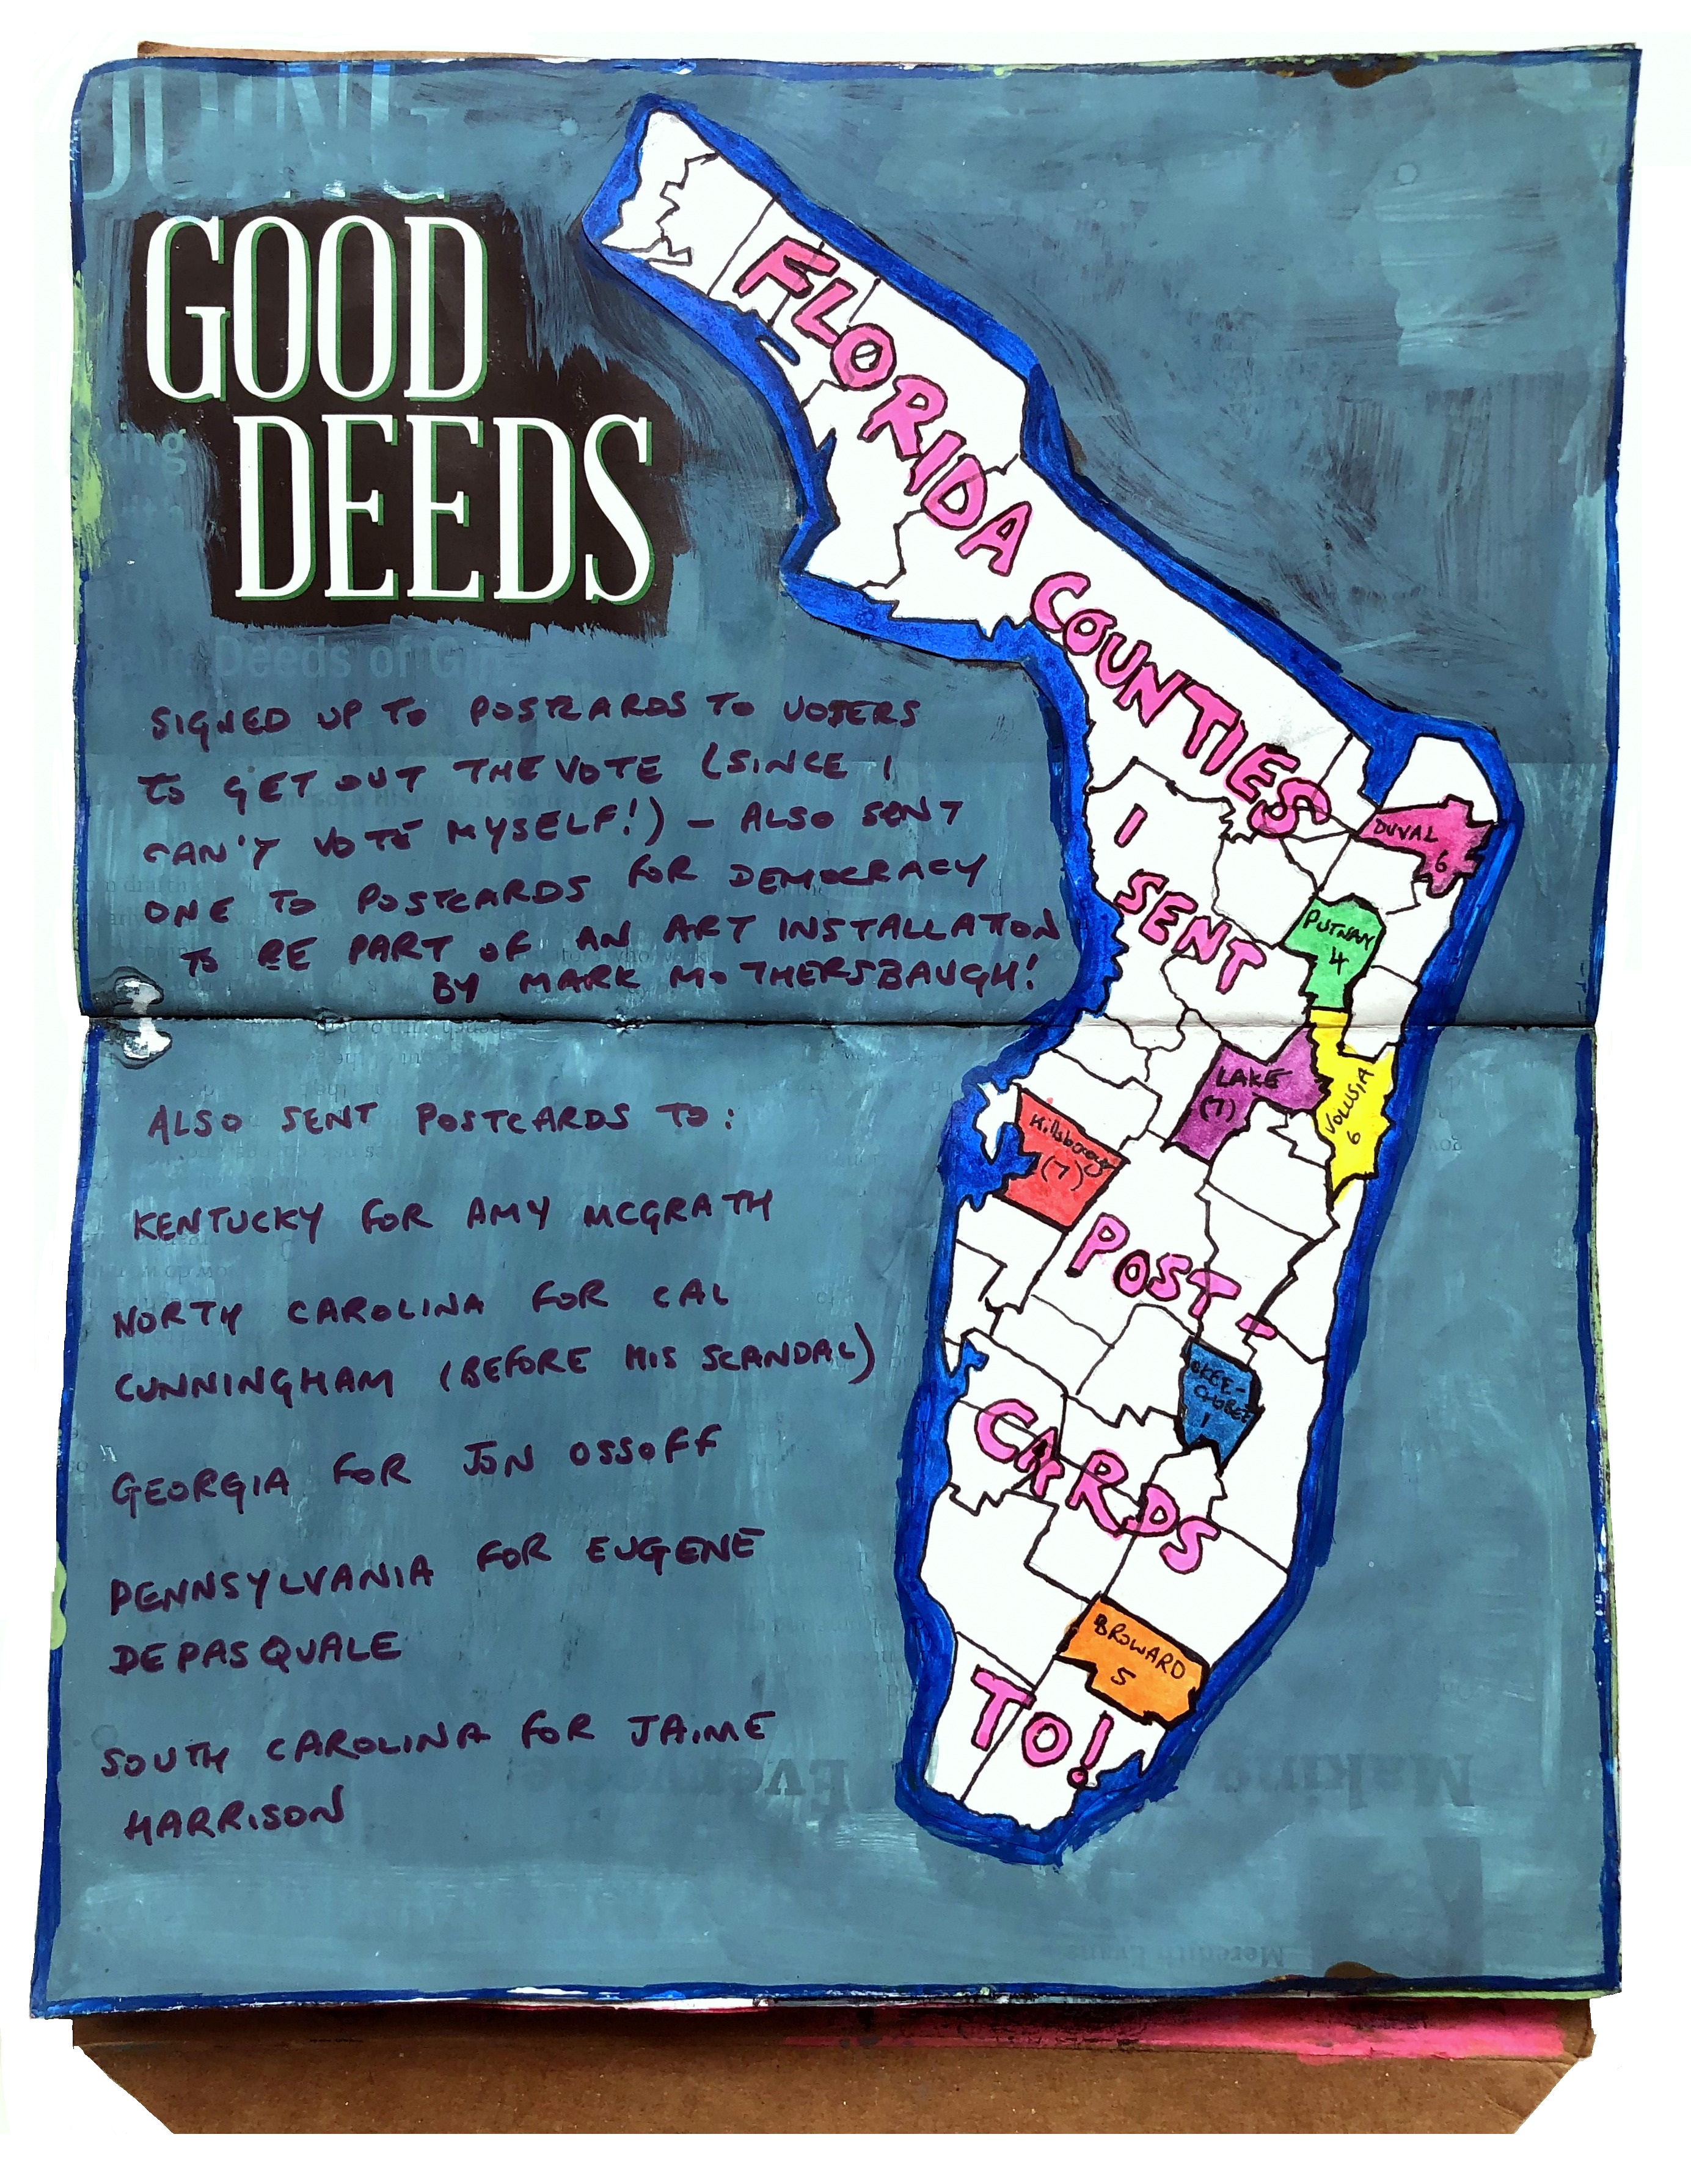 GOOD
DEEDS
Deeds of
SIGNED UP TO POSTCARDS TO VOTERS
TO GET OUT THE VOTE (SINCE I
CAN'T VOTE MYSELF!) – ALSO SENT
ONE TO POSTCARDS FOR DEMOCRACY
TO BE PART OF AN ART INSTALLATION
BY MARK MOTHERSBAUGH!
ALSO SENT POSTCARDS TO:
KENTUCKY FOR AMY MCGRATH
NORTH CAROLINA FOR CAL
CUNNINGHAM (BEFORE HIS SCANDAL)
GEORGIA FOR JON OSSOFF
PENNSYLVANIA FOR EUGENE
DEPASQUALE
SOUTH CAROLINA FOR JAIME
HARRISON
FLORIDA COUNTIES
I SENT
POST-
CARDS
TO!
DUVAL
6
PUTNAM
4
LAKE
(7)
VOLUSIA
6
Hillsborough
(7)
OKEE-
CHOBEE
1
BROWARD
5
Making
Meredith Evans